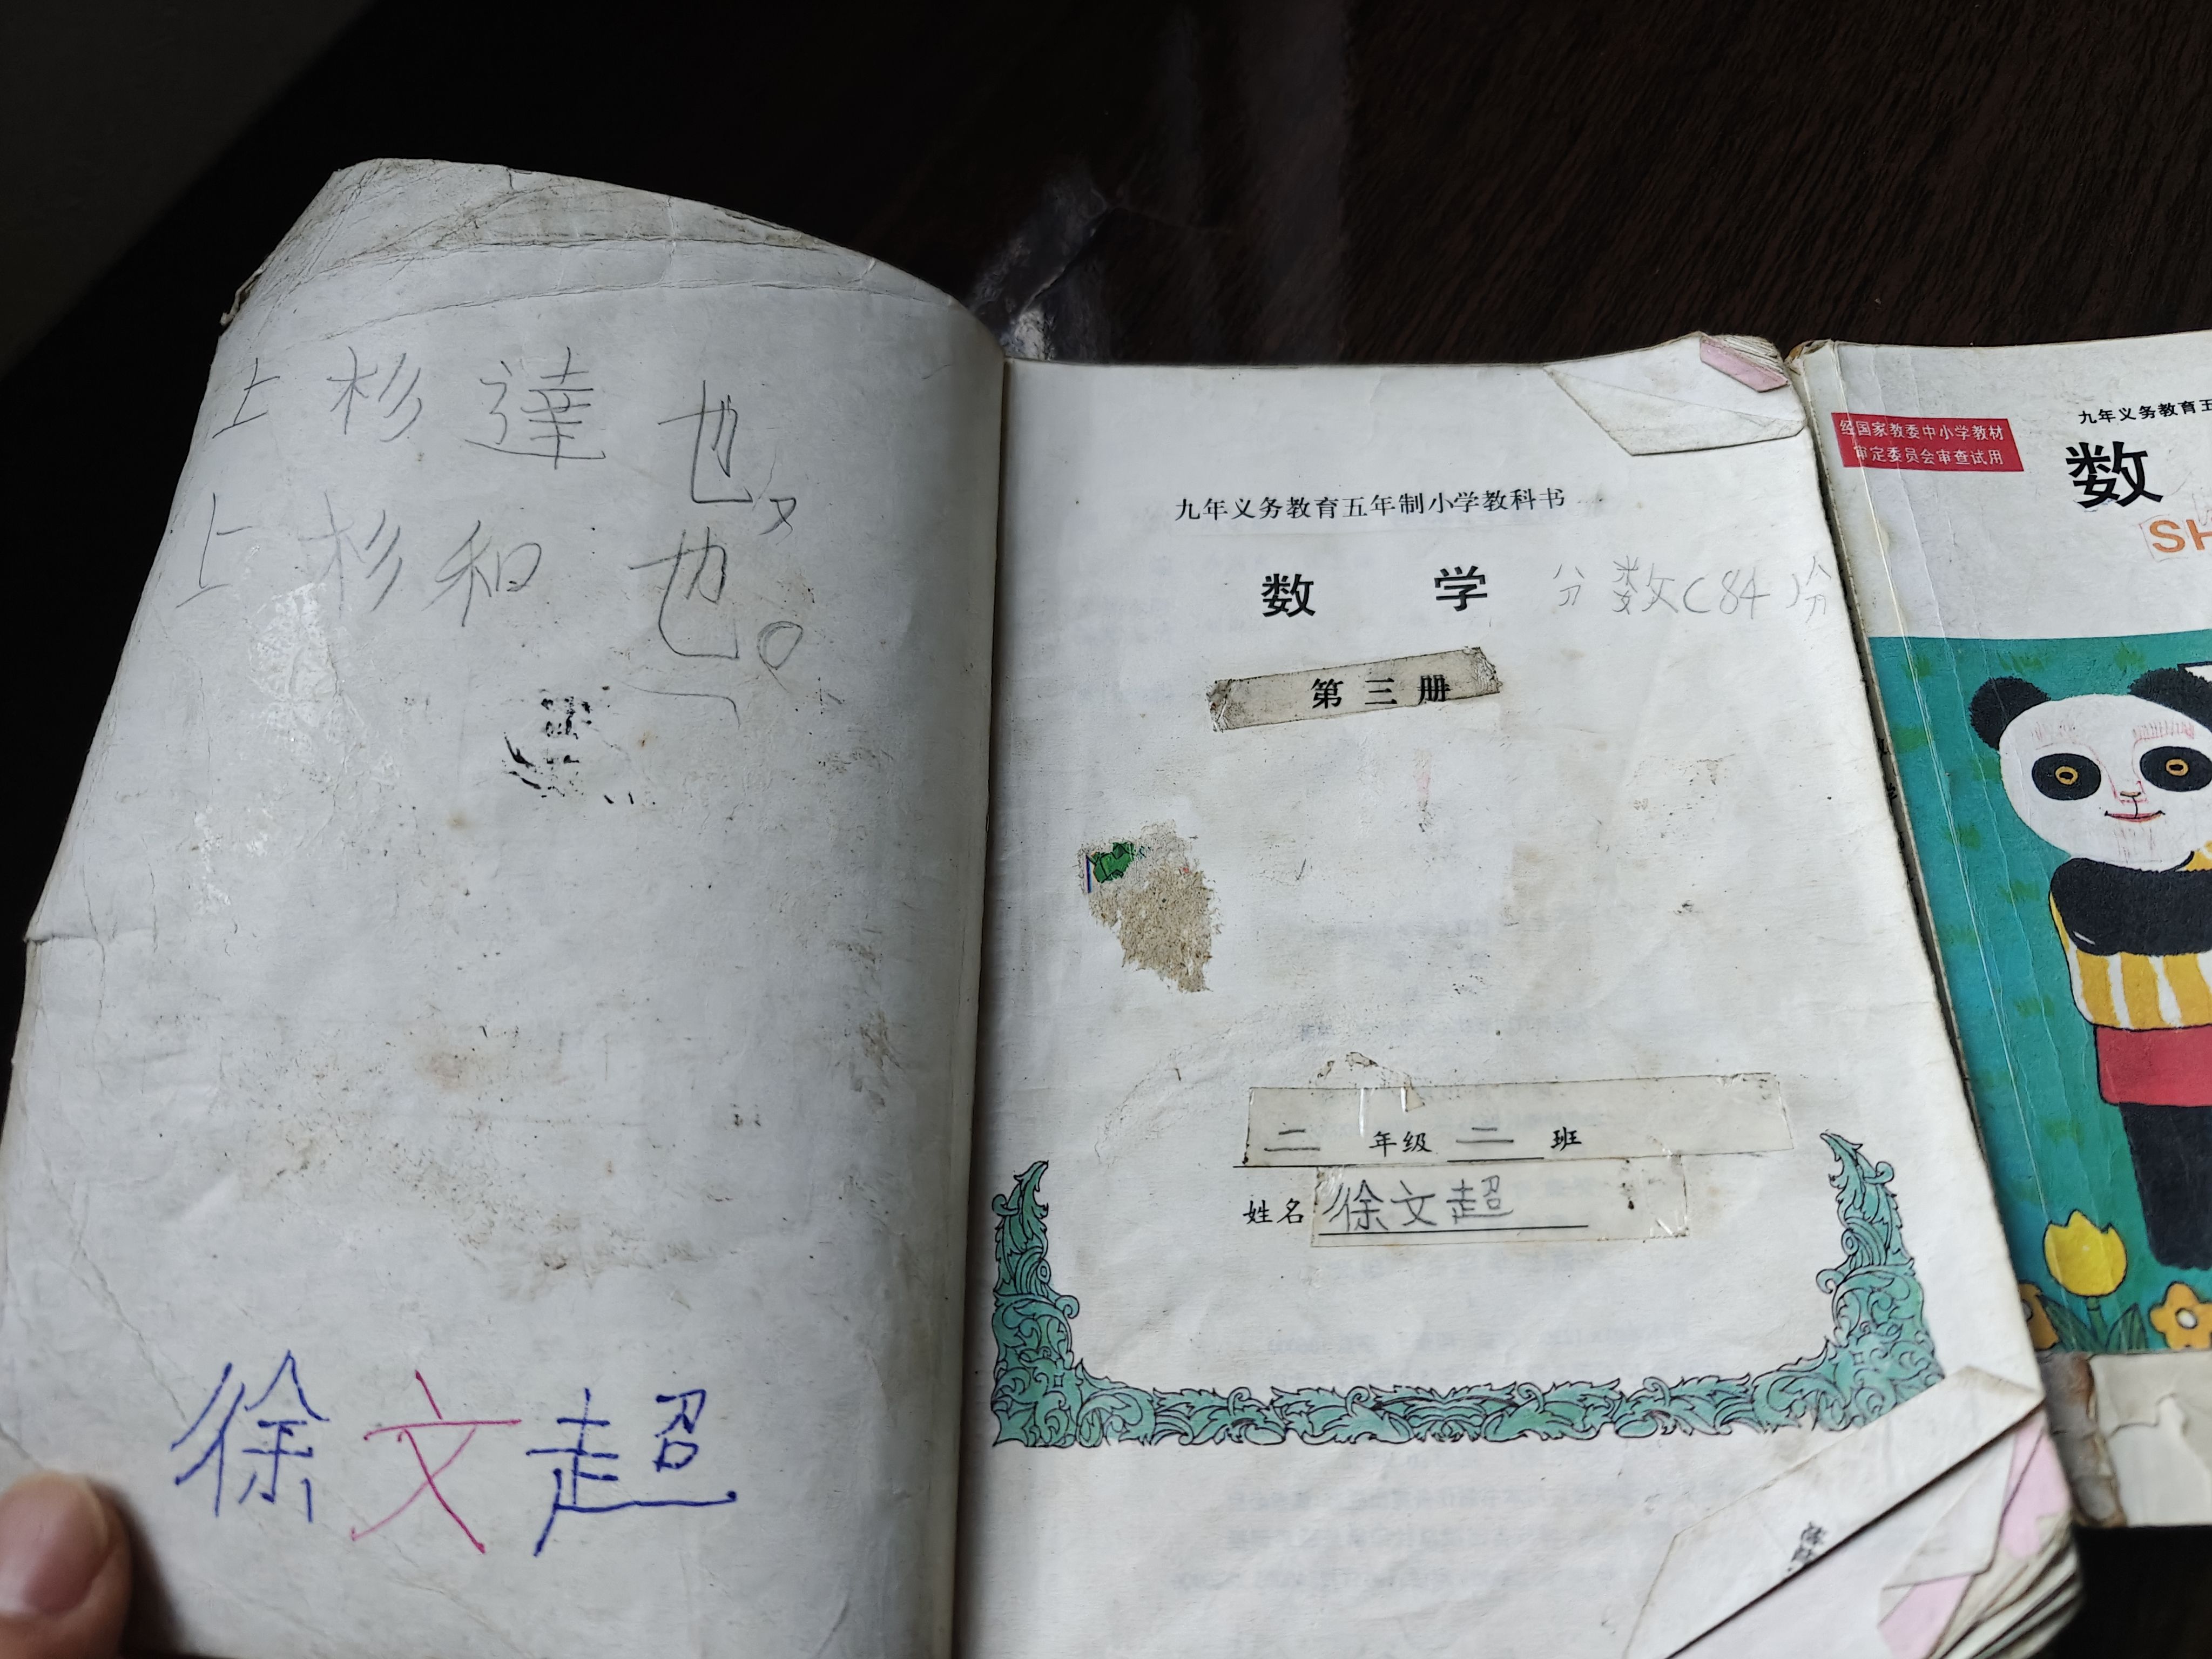 上杉達也,
上杉和也。
徐文超
九年义务教育五年制小学教科书
数 学 分数(84)分
第三册
二 年级 二 班
姓名 徐文超
经国家教委中小学教材
审定委员会审查试用
九年义务教育五
数
SH